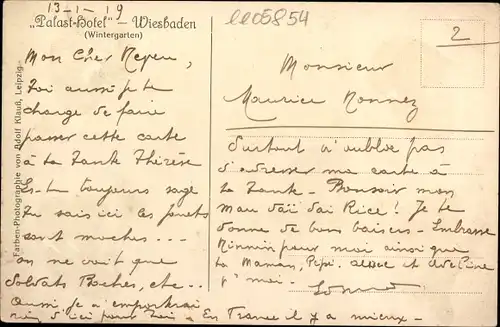 13-1-19
„Palast-Hotel" – Wiesbaden
(Wintergarten)
ee05854
2
Farben-Photographie von Adolf Klauß, Leipzig.
Mon Cher Neveu,
Toi aussi je te
charge de faire
passer cette carte
à ta Tante Thérèse
Es-tu toujours sage
Tu sais ici les jouets
sont moches...
on ne voit que
Soldats Boches, etc...
Aussi je n'emporterai
rien d'ici pour toi - En France il y a mieux -
Monsieur
Maurice
Surtout n'oublie pas
d'adresser ma carte à
ta Tante - Bonsoir mon
Je te
donne de bons baisers - Embrasse
pour moi ainsi que
ta Maman, Pépé,
p' moi -